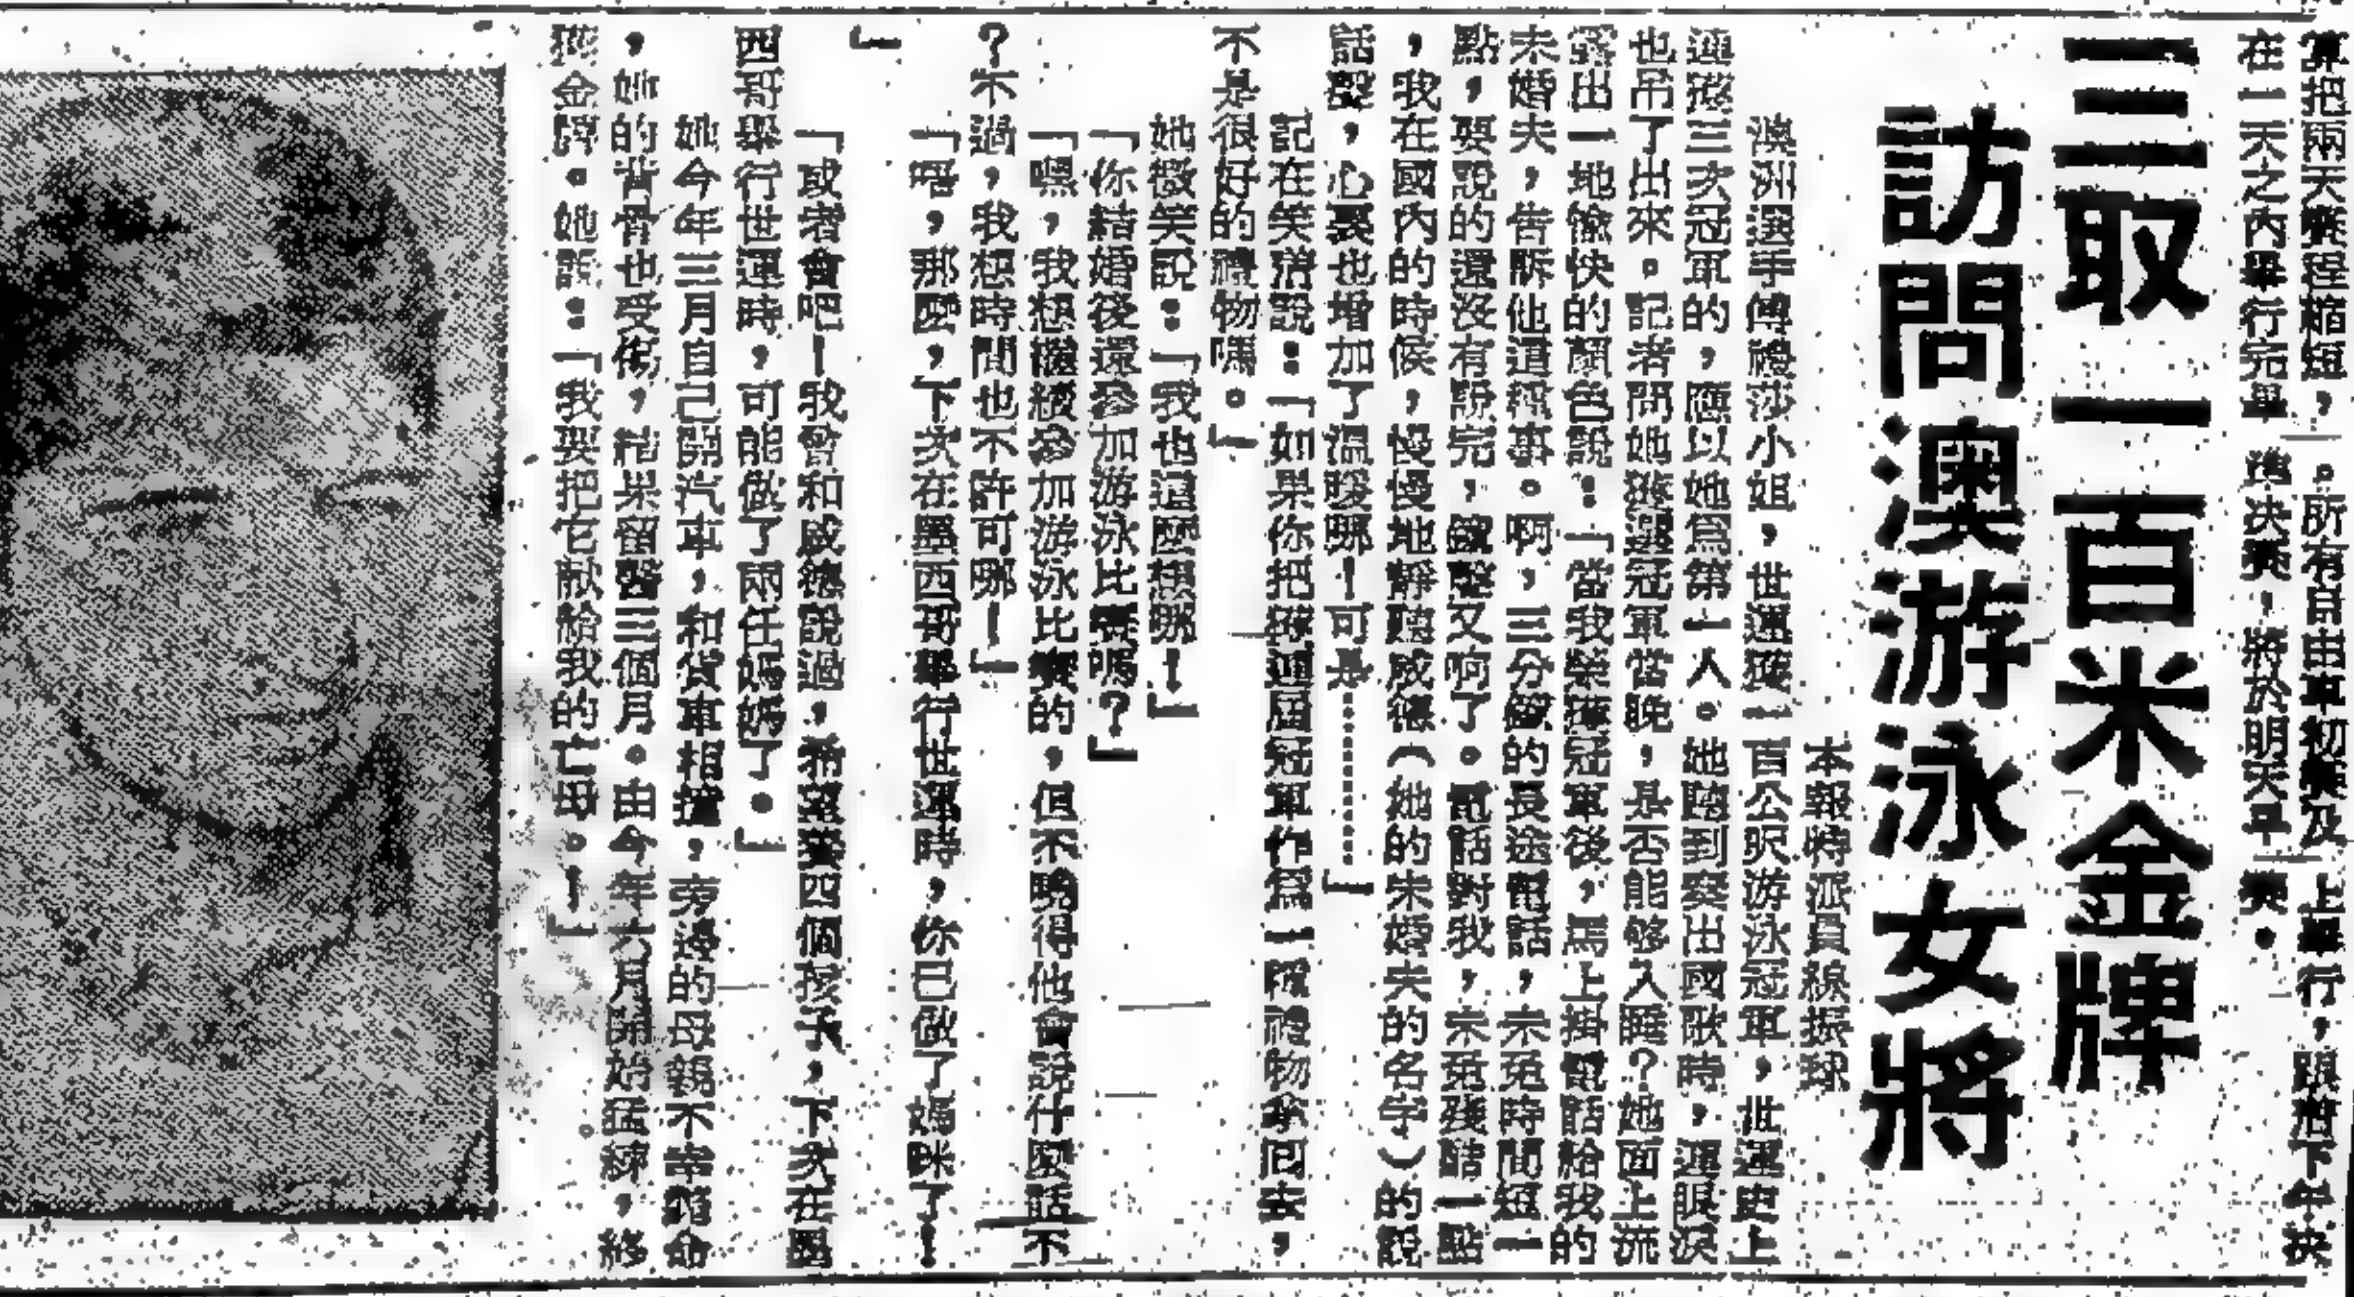 算把兩天賽程縮短，
在一天之內舉行完畢
。所有自由車初賽及
決賽，將於明天早
上舉行，
下午決
賽。
三取一百米金牌
訪問澳游泳女將
本報特派員線振球
澳洲選手傅禮莎小姐，世運獲一百公呎游泳冠軍，世運史上
連獲三次冠軍的，應以她爲第一人。她聽到奏出國歌時，連眼淚
也吊了出來。記者問她獲選冠軍當晚，是否能够入睡？她面上流
露出一地愉快的顏色說：「當我榮獲冠軍後，馬上掛電話給我的
未婚夫，告訴他這樁事。啊，三分鐘的長途電話，未免時間短一
點，要說的還沒有說完，鐘聲又响了。電話對我，未免殘酷一點
，我在國內的時候，慢慢地靜聽威德（她的未婚夫的名字）的說
話聲，心裏也增加了溫暖哪！可是…………」
記在笑着說：「如果你把獲這屆冠軍作爲一種禮物拿囘去，
不是很好的禮物嗎。」
她微笑說：「我也這麽想哪！」
「你結婚後還參加游泳比賽嗎？」
「嘿，我想繼續參加游泳比賽的，但不曉得他會說什麼話不
？不過，我想時間也不許可哪！」
「唔，那麽，下次在墨西哥舉行世運時，你已做了媽咪了！
」
「或者會吧！我曾和威德說過，希望養四個孩子，下次在墨
西哥舉行世運時，可能做了兩任媽媽了。」
她今年三月自己開汽車，和貨車相撞，旁邊的母親不幸殞命
，她的背骨也受傷，結果留醫三個月。由今年六月開始猛練，終
獲金牌。她說：「我要把它献給我的亡母。！」